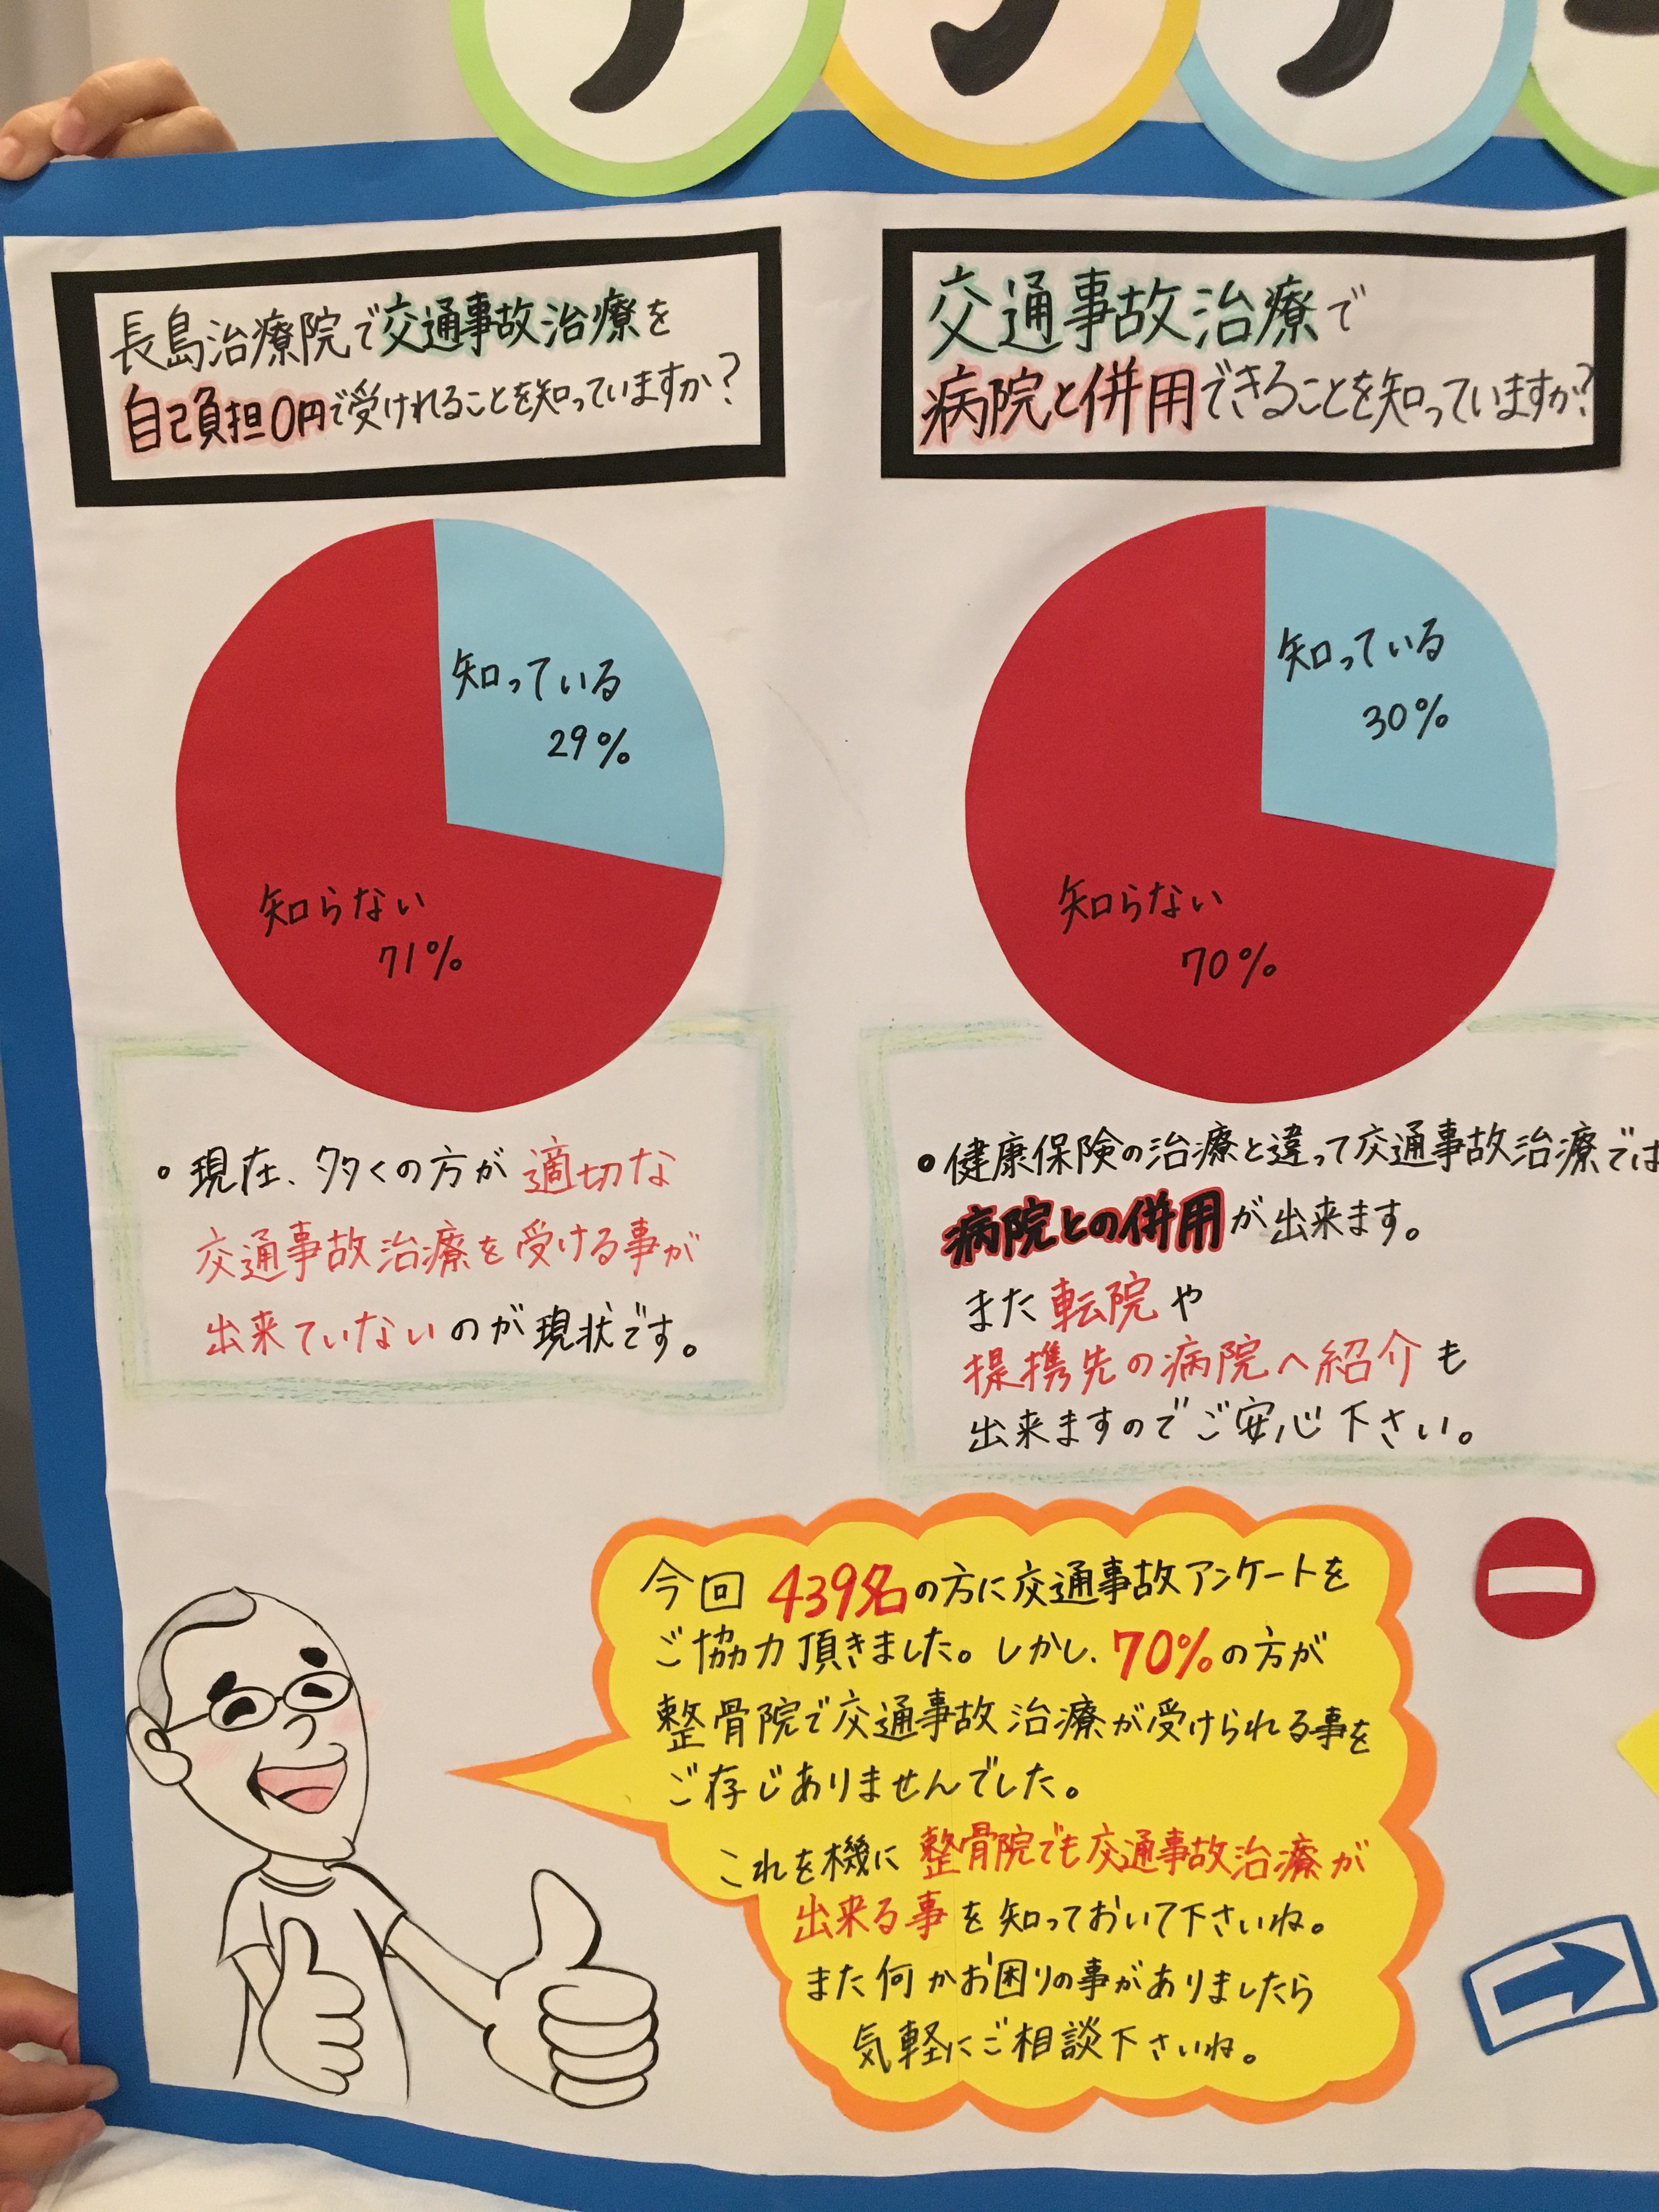 長島治療院で交通事故治療を
自己負担0円で受けれることを知っていますか?
知っている
29%
知らない
71%
・現在、多くの方が適切な
交通事故治療を受ける事が
出来ていないのが現状です。
交通事故治療で
病院と併用できることを知っていますか?
知っている
30%
知らない
70%
・健康保険の治療と違って交通事故治療では
病院との併用が出来ます。
また転院や
提携先の病院へ紹介も
出来ますのでご安心下さい。
今回 439名の方に交通事故アンケートを
ご協力頂きました。しかし、70%の方が
整骨院で交通事故治療が受けられる事を
ご存じありませんでした。
これを機に整骨院でも交通事故治療が
出来る事を知っておいて下さいね。
また何かお困りの事がありましたら
気軽にご相談下さいね。